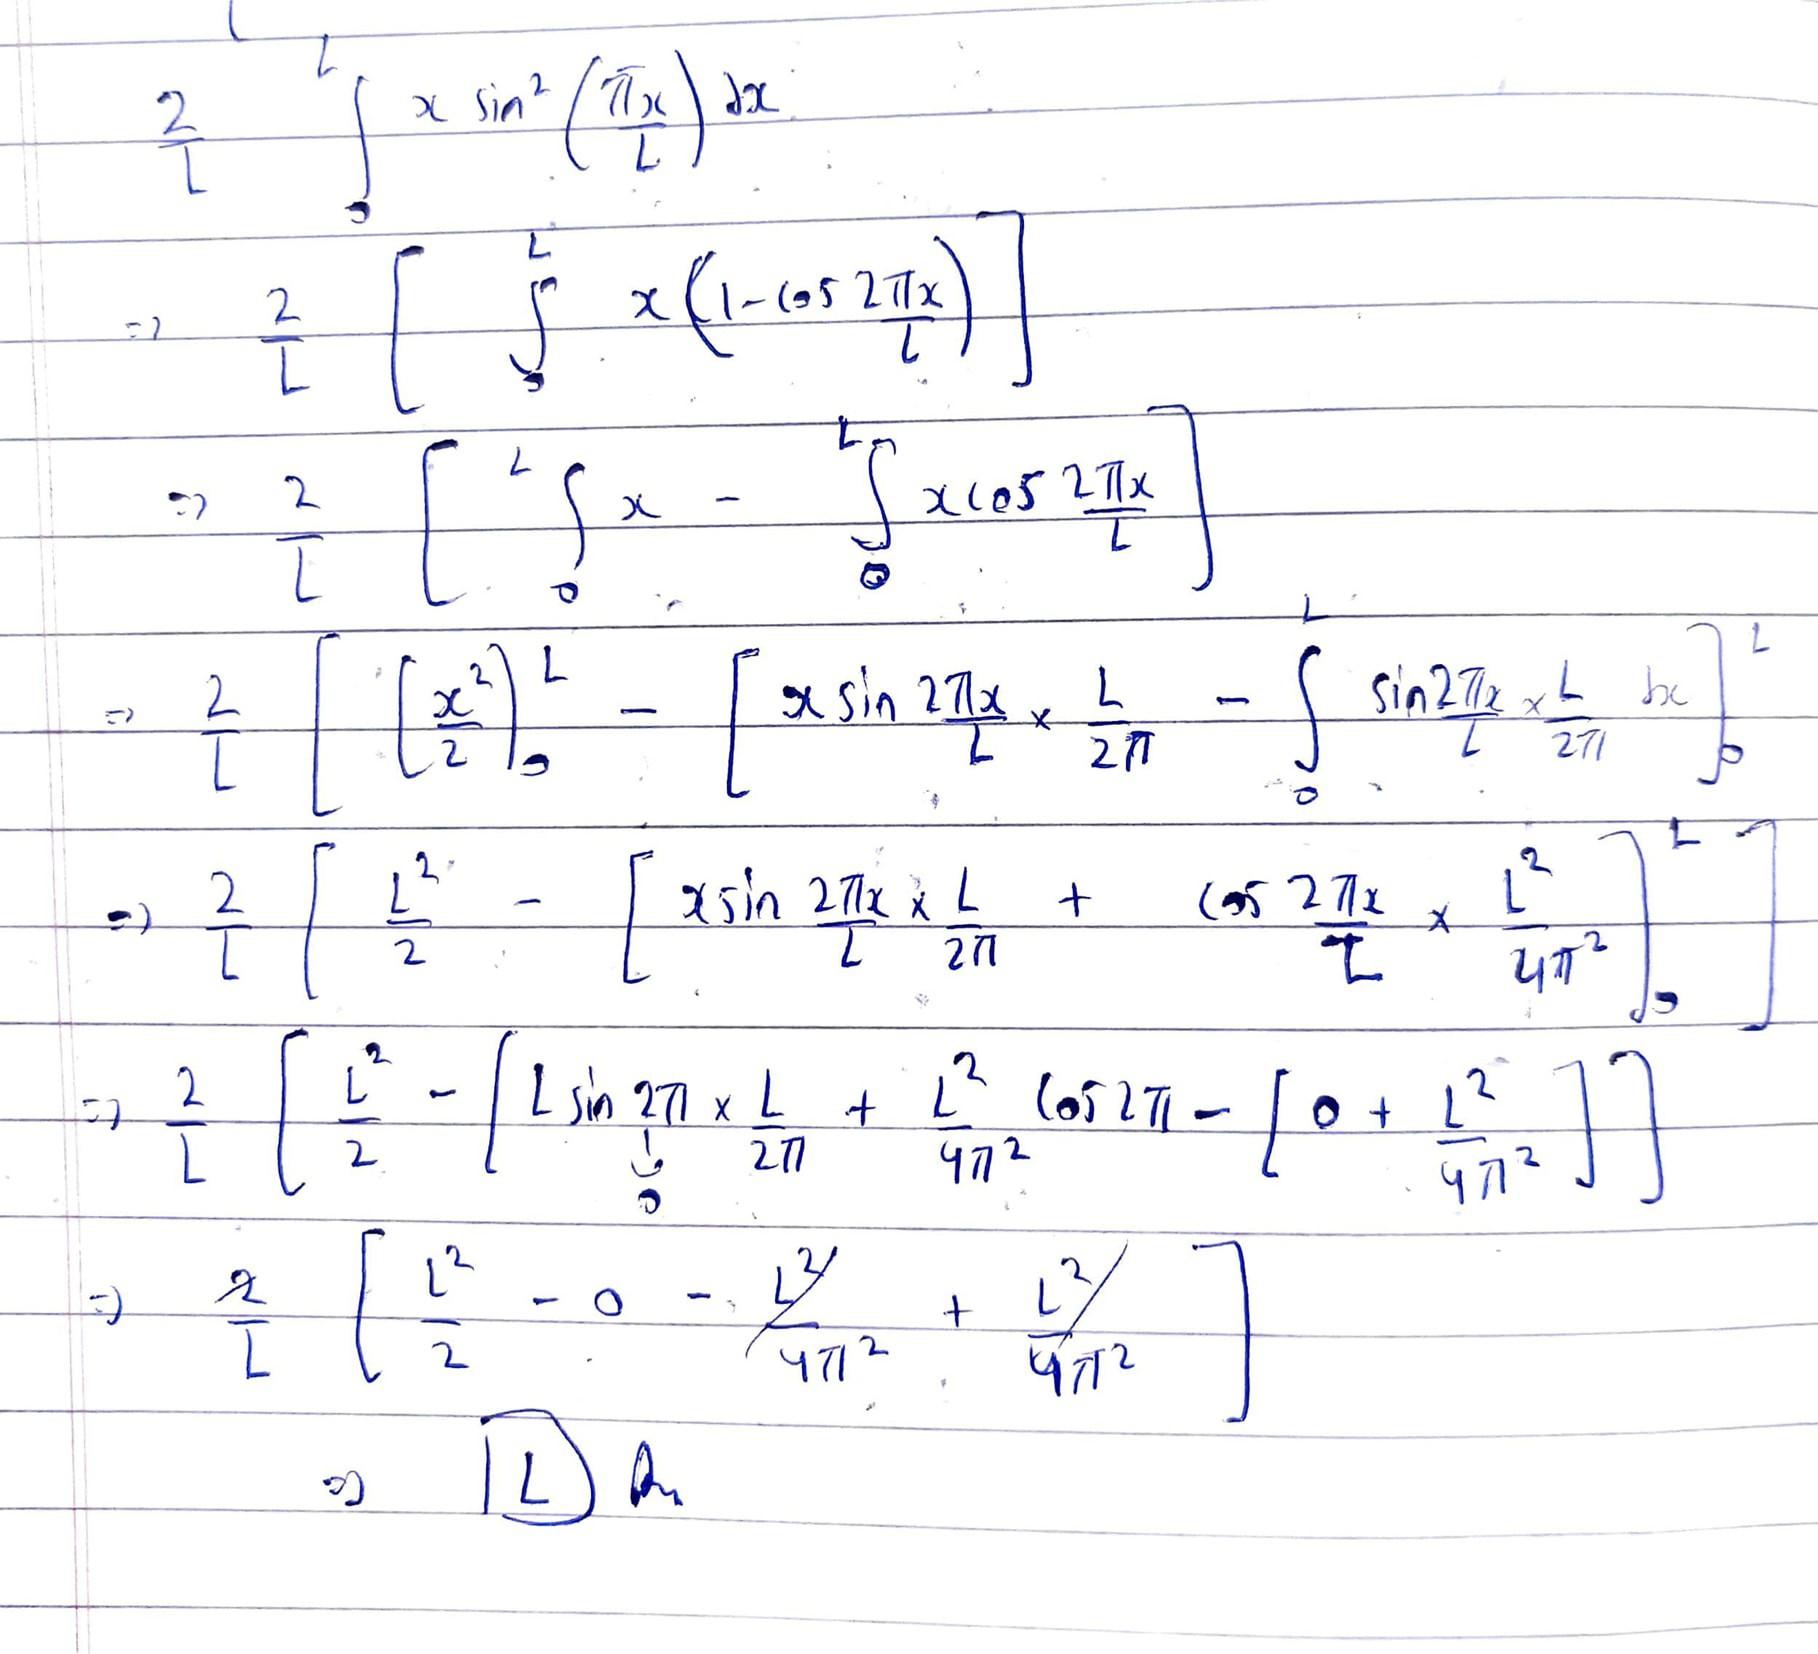 2/L ∫₀ᴸ x sin² (πx/L) dx
=> 2/L [ ∫₀ᴸ x (1 - cos 2πx/L) ]
=> 2/L [ ∫₀ᴸ x - ∫₀ᴸ x cos 2πx/L ]
=> 2/L [ [x²/2]₀ᴸ - [ x sin 2πx/L × L/2π - ∫₀ᴸ sin 2πx/L × L/2π dx ]₀ᴸ
=> 2/L [ L²/2 - [ x sin 2πx/L × L/2π + cos 2πx/L × L²/4π² ]₀ᴸ ]
=> 2/L [ L²/2 - [ L sin 2π × L/2π + L²/4π² cos 2π - [ 0 + L²/4π² ] ]
↓
0
=> 2/L [ L²/2 - 0 - L²/4π² + L²/4π² ]
=> L